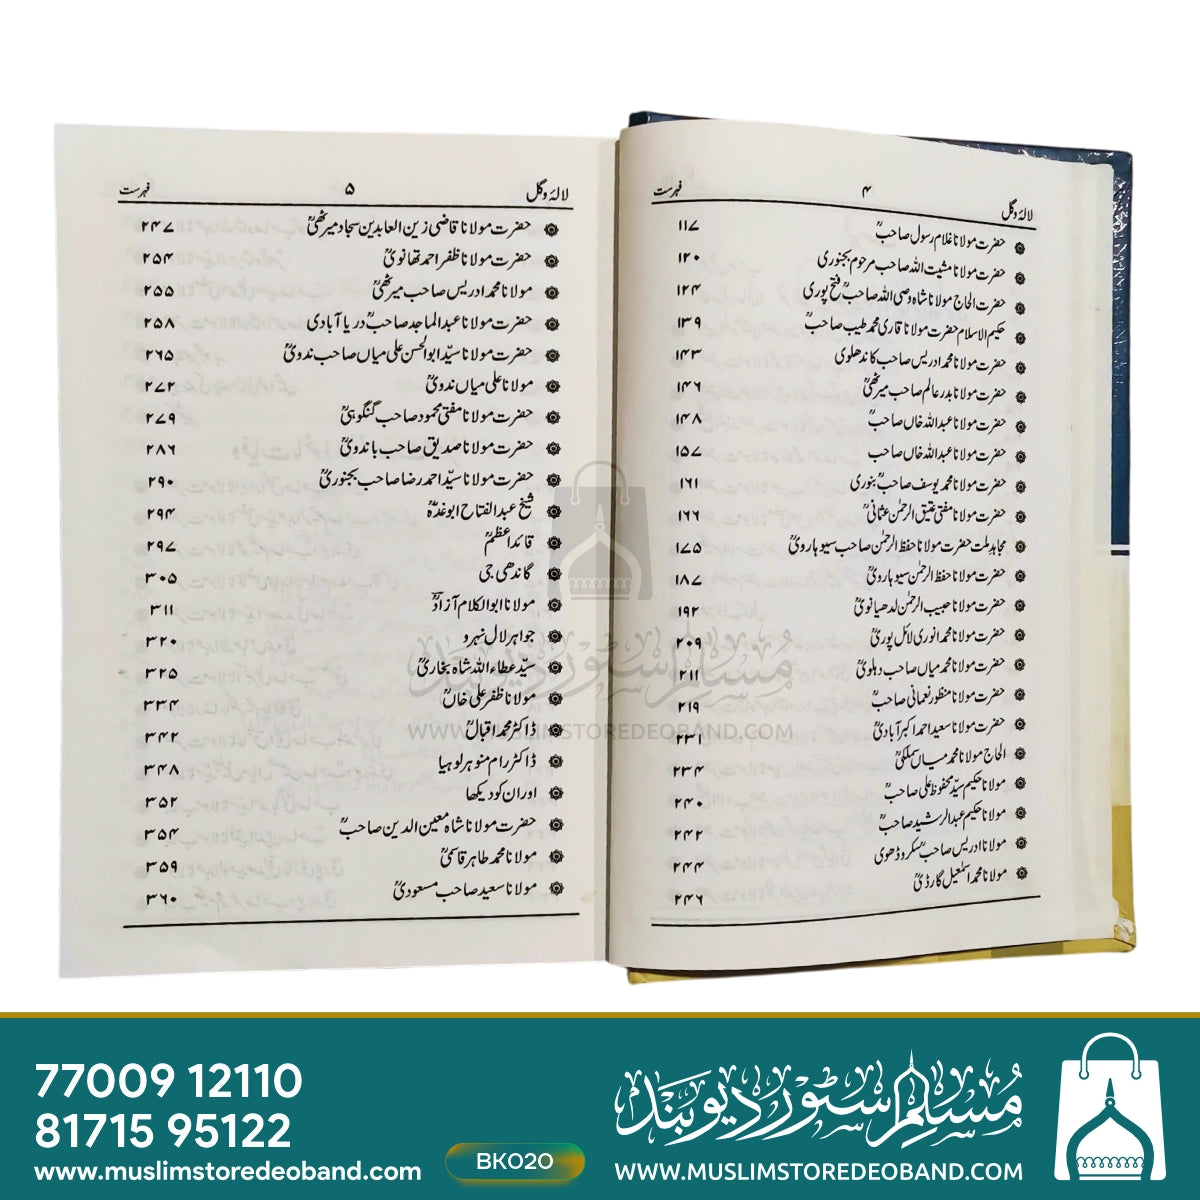 لالۂ وگل ۴ فہرست
حضرت مولانا غلام رسول صاحبؒ ۱۱۷
حضرت مولانا مشیت اللہ صاحب مرحوم بجنوری ۱۲۰
حضرت الحاج مولانا شاہ وصی اللہ صاحبؒ فتح پوری ۱۲۴
حکیم الاسلام حضرت مولانا قاری محمد طیب صاحبؒ ۱۳۹
حضرت مولانا محمد ادریس صاحب کاندھلوی ۱۴۳
حضرت مولانا بدر عالم صاحب میرٹھیؒ ۱۴۶
حضرت مولانا عبداللہ خاں صاحبؒ ۱۴۸
حضرت مولانا عبداللہ خاں صاحب ۱۵۷
حضرت مولانا محمد یوسف صاحبؒ بنوری ۱۶۱
حضرت مولانا مفتی عتیق الرحمٰن عثمانیؒ ۱۶۶
مجاہد ملت حضرت مولانا حفظ الرحمٰن صاحب سیوہارویؒ ۱۷۵
حضرت مولانا حفظ الرحمٰن سیوہارویؒ ۱۸۷
حضرت مولانا حبیب الرحمٰن لدھیانویؒ ۱۹۲
حضرت مولانا محمد انوری لائل پوریؒ ۲۰۹
حضرت مولانا محمد میاں صاحب دہلویؒ ۲۱۱
حضرت مولانا منظور نعمانی صاحبؒ ۲۱۹
حضرت مولانا سعید احمد اکبرآبادیؒ ۲۳۱
الحاج مولانا محمد میاں سملکیؒ ۲۳۴
مولانا حکیم سیّد محفوظ علی صاحبؒ ۲۴۰
مولانا حکیم عبدالرشید صاحبؒ ۲۴۲
مولانا ادریس صاحبؒ سکروڈھوی ۲۴۴
مولانا محمد اسمٰعیل گارڈیؒ ۲۴۶
لالۂ وگل ۵ فہرست
حضرت مولانا قاضی زین العابدین سجاد میرٹھیؒ ۲۴۷
حضرت مولانا ظفر احمد تھانویؒ ۲۵۴
مولانا محمد ادریس صاحب میرٹھیؒ ۲۵۵
حضرت مولانا عبدالماجد صاحبؒ دریا آبادی ۲۵۸
حضرت مولانا سیّد ابوالحسن علی میاں صاحب ندویؒ ۲۶۵
مولانا علی میاں ندویؒ ۲۷۲
حضرت مولانا مفتی محمود صاحب گنگوہیؒ ۲۷۹
حضرت مولانا صدیق صاحب باندویؒ ۲۸۶
حضرت مولانا سیّد احمد رضا صاحب بجنوریؒ ۲۹۰
شیخ عبدالفتاح ابوغدہؒ ۲۹۴
قائد اعظمؒ ۲۹۷
گاندھی جی ۳۰۵
مولانا ابوالکلام آزادؒ ۳۱۱
جواہر لال نہرو ۳۲۰
سیّد عطاء اللہ شاہ بخاریؒ ۳۲۵
مولانا ظفر علی خاںؒ ۳۳۴
ڈاکٹر محمد اقبالؒ ۳۴۲
ڈاکٹر رام منوہر لوہیا ۳۴۸
اور ان کو دیکھا ۳۵۲
حضرت مولانا شاہ معین الدین صاحبؒ ۳۵۴
مولانا محمد طاہر قاسمیؒ ۳۵۹
مولانا سعید صاحب مسعودیؒ ۳۶۰
مسلم سٹور دیوبند
WWW.MUSLIMSTOREDEOBAND.COM
77009 12110
81715 95122
www.muslimstoredeoband.com
BK020
مسلم سٹور دیوبند
WWW.MUSLIMSTOREDEOBAND.COM